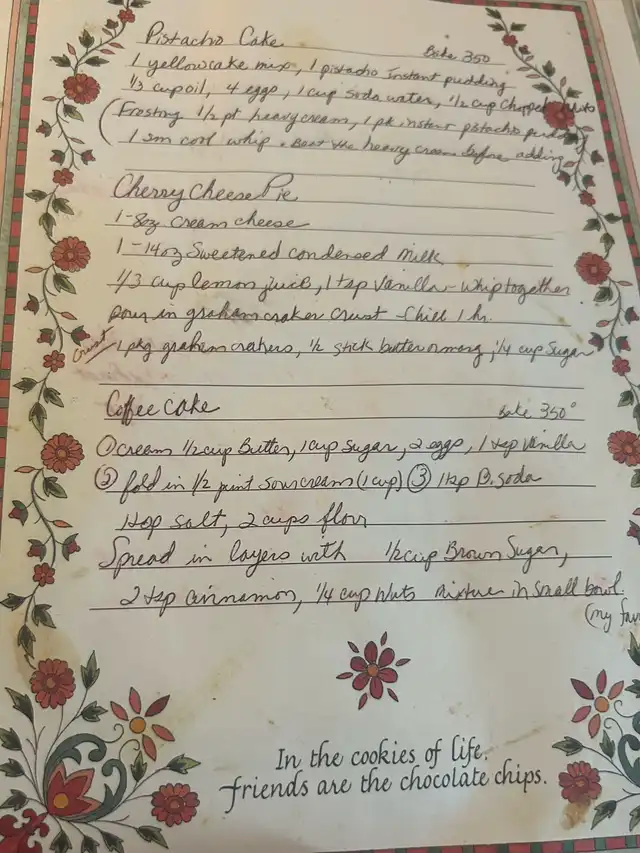 Pistacho Cake Bake 350
1 yellowcake mix, 1 pistacho Instant pudding
1/3 cup oil, 4 eggs, 1 cup soda water, 1/2 cup Chopped Nuts
(Frosting 1/2 pt heavy cream, 1 pk instant pistacho pudding
1 sm cool whip • Beat the heavy cream before adding
Cherry Cheese Pie
1-8oz cream cheese
1-14oz Sweetened condensed Milk
1/3 cup lemon juice, 1 tsp Vanilla - Whip together
pour in graham craker Crust - Chill 1 hr.
Crust 1 pkg graham crakers, 1/2 stick butter or marg, 1/4 cup Sugar
Coffee cake Bake 350°
① cream 1/2 cup Butter, 1 cup Sugar, 2 eggs, 1 tsp Vanilla
② fold in 1/2 pint sour cream (1 cup) ③ 1 tsp B. soda
1 tsp salt, 2 cups flour
Spread in layers with 1/2 cup Brown Sugar,
2 tsp cinnamon, 1/4 cup Nuts mixture in Small bowl.
(my fav
In the cookies of life,
friends are the chocolate chips.